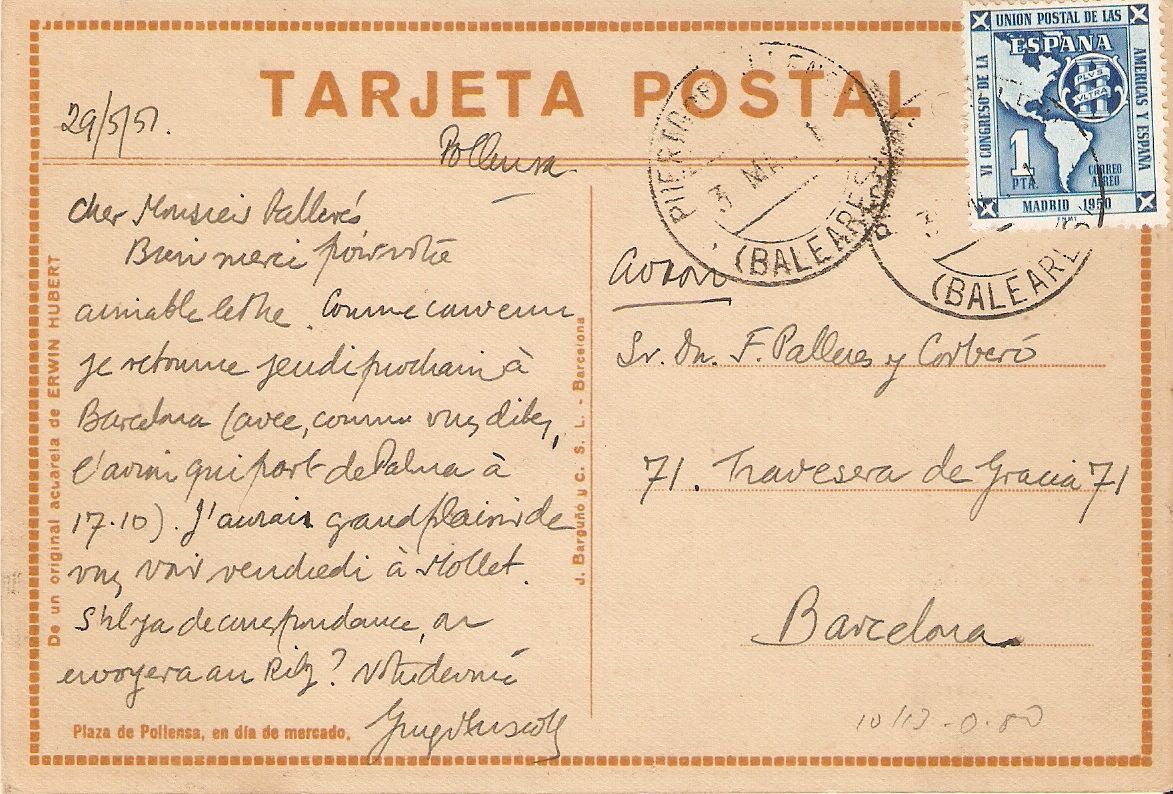 TARJETA POSTAL
29/5/51.
Pollensa
Cher Monsieur Pallerés
Bien merci pour votre
aimable lettre. Comme convenu
je retourne jeudi prochain à
Barcelona (avec, comme vous dites,
l'avion qui part de Palma à
17.10). J'aurais grand plaisir de
vous voir vendredi à Mollet.
S'il y a de correspondance, on
envoyera au Ritz? Votre devoué
Plaza de Pollensa, en día de mercado.
De un original acuarela de ERWIN HUBERT
J. Barguñó y C. S. L. - Barcelona
UNION POSTAL DE LAS
AMERICAS Y ESPAÑA
VI CONGRESO DE LA
ESPAÑA
PLVS
VLTRA
1
PTA.
CORREO
AEREO
MADRID 1950
FNMT
PUERTO POLLENSA
3 MA
(BALEARES)
3
(BALEARES)
avion
Sr. Dn. F. Palleres y Corberó
71. Travesera de Gracia 71
Barcelona
10/13-0-80